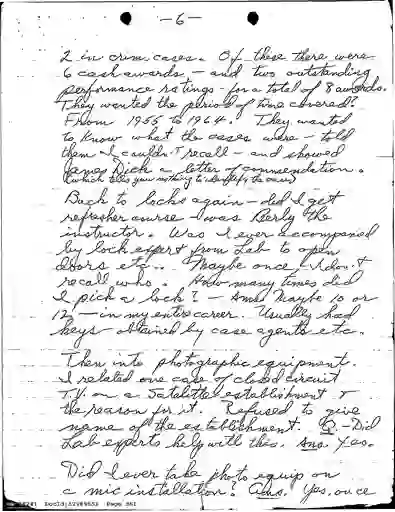 -6-
2 in crim. cases. Of these there were
6 cash awards, - and two outstanding
performance ratings - for a total of 8 awards.
They wanted the period of time covered?
From 1955 to 1964. They wanted
to know what the cases were - told
them I couldn't recall - and showed
James Dick a letter of commendation.
(which tells you nothing to identify the case)
Back to locks again - did I get
refresher course - I was Rarely the
instructor. Was I ever accompanied
by lock expert from Lab to open
doors etc... Maybe once, I don't
recall who. How many times did
I pick a lock? - Ans. Maybe 10 or
12 - in my entire career. Usually had
keys obtained by case agents etc.
Then into photographic equipment.
I related one case of closed circuit
T.V. on a Satelitte establishment &
the reason for it. Refused to give
name of the establishment. Q - Did
Lab experts help with this. Ans. Yes.
Did I ever take photo equip on
a mic installation? Ans. Yes, once
DocId:32989653 Page 361